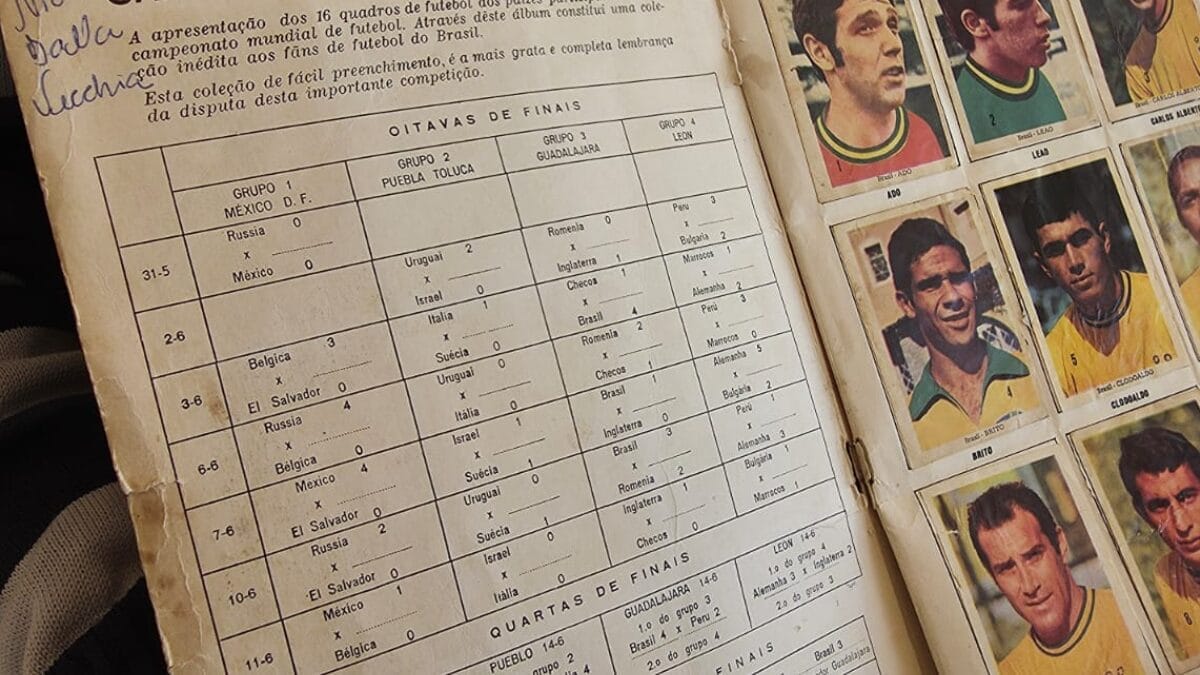 Dalla
Vecchia
A apresentação dos 16 quadros de futebol dos países
campeonato mundial de futebol. Através dêste álbum constitui uma cole-
ção inédita aos fãns de futebol do Brasil.
Esta coleção de fácil preenchimento, é a mais grata e completa lembrança
da disputa desta importante competição.
OITAVAS DE FINAIS
GRUPO 1
MÉXICO D. F.
GRUPO 2
PUEBLA TOLUCA
GRUPO 3
GUADALAJARA
GRUPO 4
LEON
31-5
Russia 0
x
México 0
2-6
Uruguai 2
x
Israel 0
Romenia 0
x
Inglaterra 1
Peru 3
x
Bulgária 2
3-6
Belgica 3
x
El Salvador 0
Itália 1
x
Suécia 0
Checos 1
x
Brasil 4
Marrocos 1
x
Alemanha 2
6-6
Russia 4
x
Bélgica 0
Uruguai 0
x
Itália 0
Romenia 2
x
Checos 1
Perú 3
x
Marrocos 0
7-6
México 4
x
El Salvador 0
Israel 1
x
Suécia 1
Brasil 1
x
Inglaterra 0
Alemanha 5
x
Bulgária 2
10-6
Russia 2
x
El Salvador 0
Uruguai 0
x
Suécia 1
Brasil 3
x
Romenia 2
Perú 1
x
Alemanha 3
11-6
México 1
x
Bélgica 0
Israel 0
x
Itália 0
Inglaterra 1
x
Checos 0
Bulgária 1
x
Marrocos 1
QUARTAS DE FINAIS
PUEBLO 14-6
grupo 2
GUADALAJARA 14-6
1.o do grupo 3
Brasil 4 x Peru 2
2.o do grupo 4
LEON 14-6
1.o do grupo 4
Alemanha 3 x Inglaterra 2
2.o do grupo 3
FINAIS
Brasil 3
Guadalajara
1
Brasil - ADO
ADO
2
Brasil - LEAO
LEAO
Brasil - CARLOS ALBERTO
CARLOS ALBERT
4
Brasil - BRITO
BRITO
5
Brasil - CLODOALDO
CLODOALDO